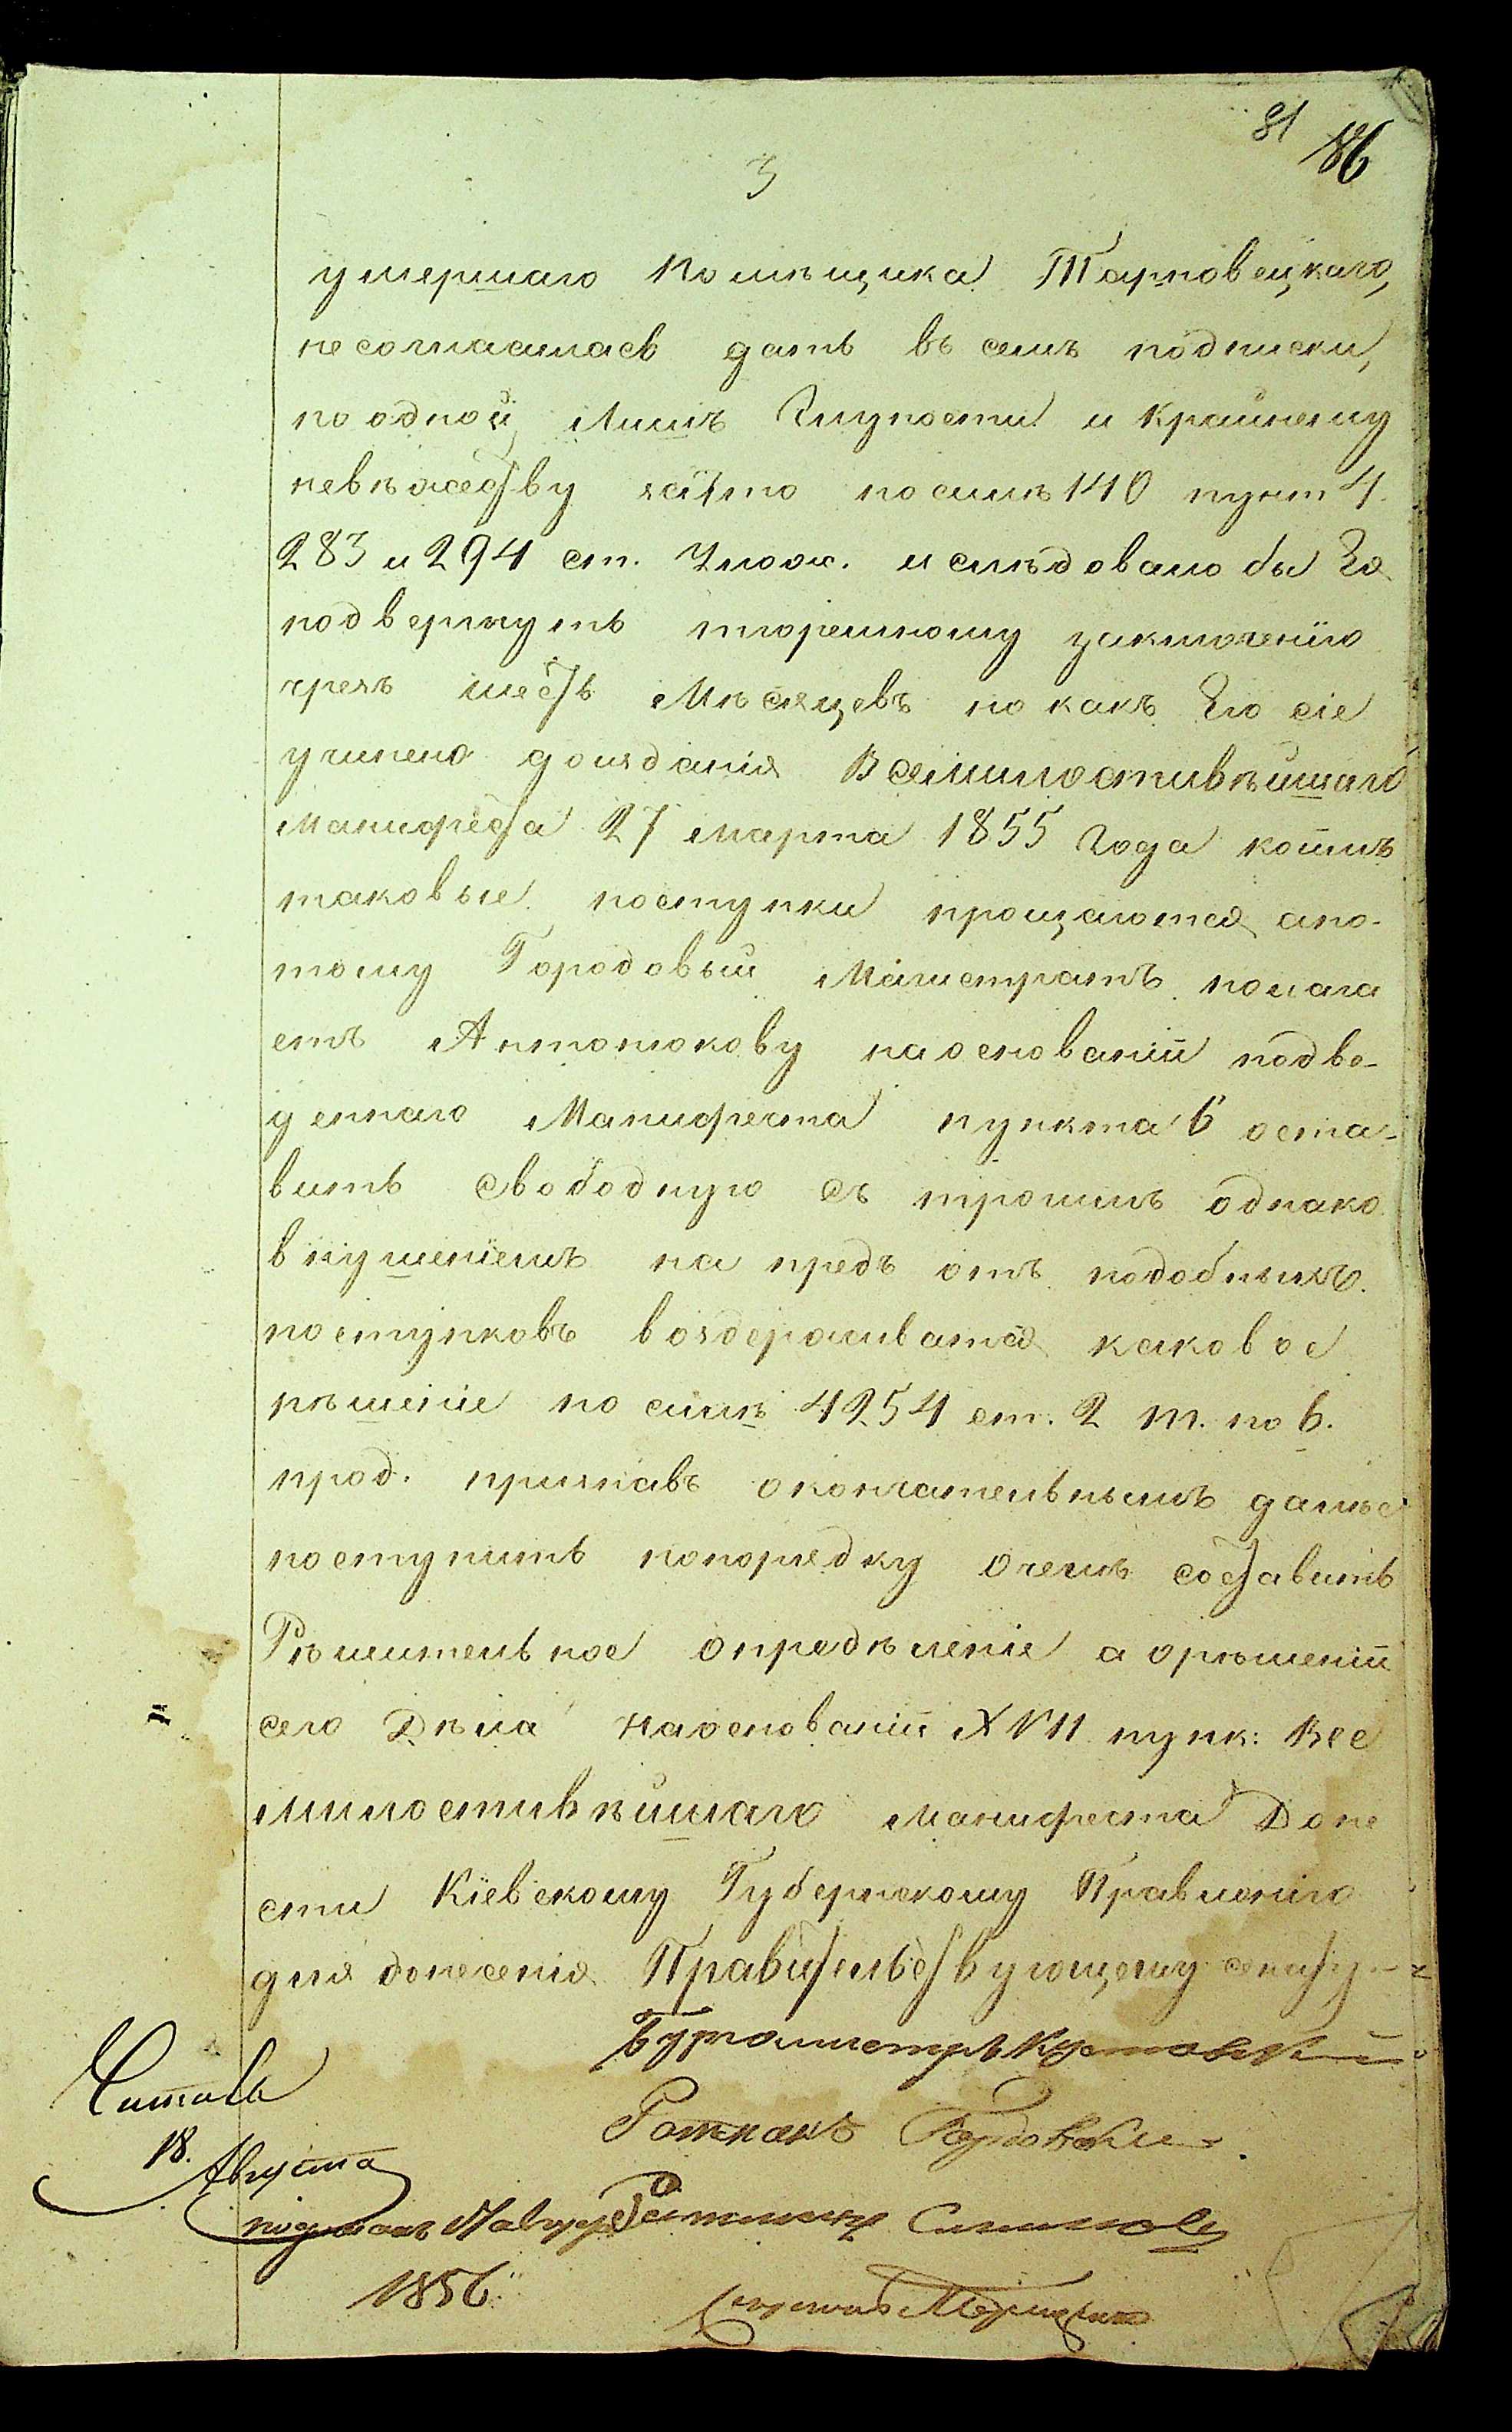 81 86
3
умершаго Помѣщика Тарновецкаго,
несогласилась дать въ семъ подписки,
по одной лишъ Глупости и Крайнему
невѣжеству зачто посилѣ 140 пунт 4.
283 и 294 ст. Улож. и слѣдовало бы Ея
подвергнуть тюремному заключенію
чрезъ шесть Мѣсяцевъ но какъ Ею сіе
учинено доизданія Всемилостивѣйшаго
Манифеста 27 марта 1855 Года коимъ
таковые поступки прощаются, апо-
тому Городовый Магистратъ полага
етъ Антонюкову наоснованіи подве-
деннаго Манифеста пункта 6 оста-
вить Свободную съ строгимъ однако
внушеніемъ на предъ отъ подобныхъ
поступковъ воздерживатся каковое
рѣшеніе по силѣ 4254 ст. 2 т. по 6.
прод. признавъ окончательнымъ далѣе
поступить попорядку очемъ составить
Рѣшительное опредѣленіе а орѣшеніи
сего Дѣла наоснованіи XVII пунк: Все
милостивѣйшаго манифеста Доне
сти Кіевскому Губернскому Правленію
для донесенія Правительствующему сенату
Бургомистръ
Ратманъ
Читалъ
18.
Августа
1856